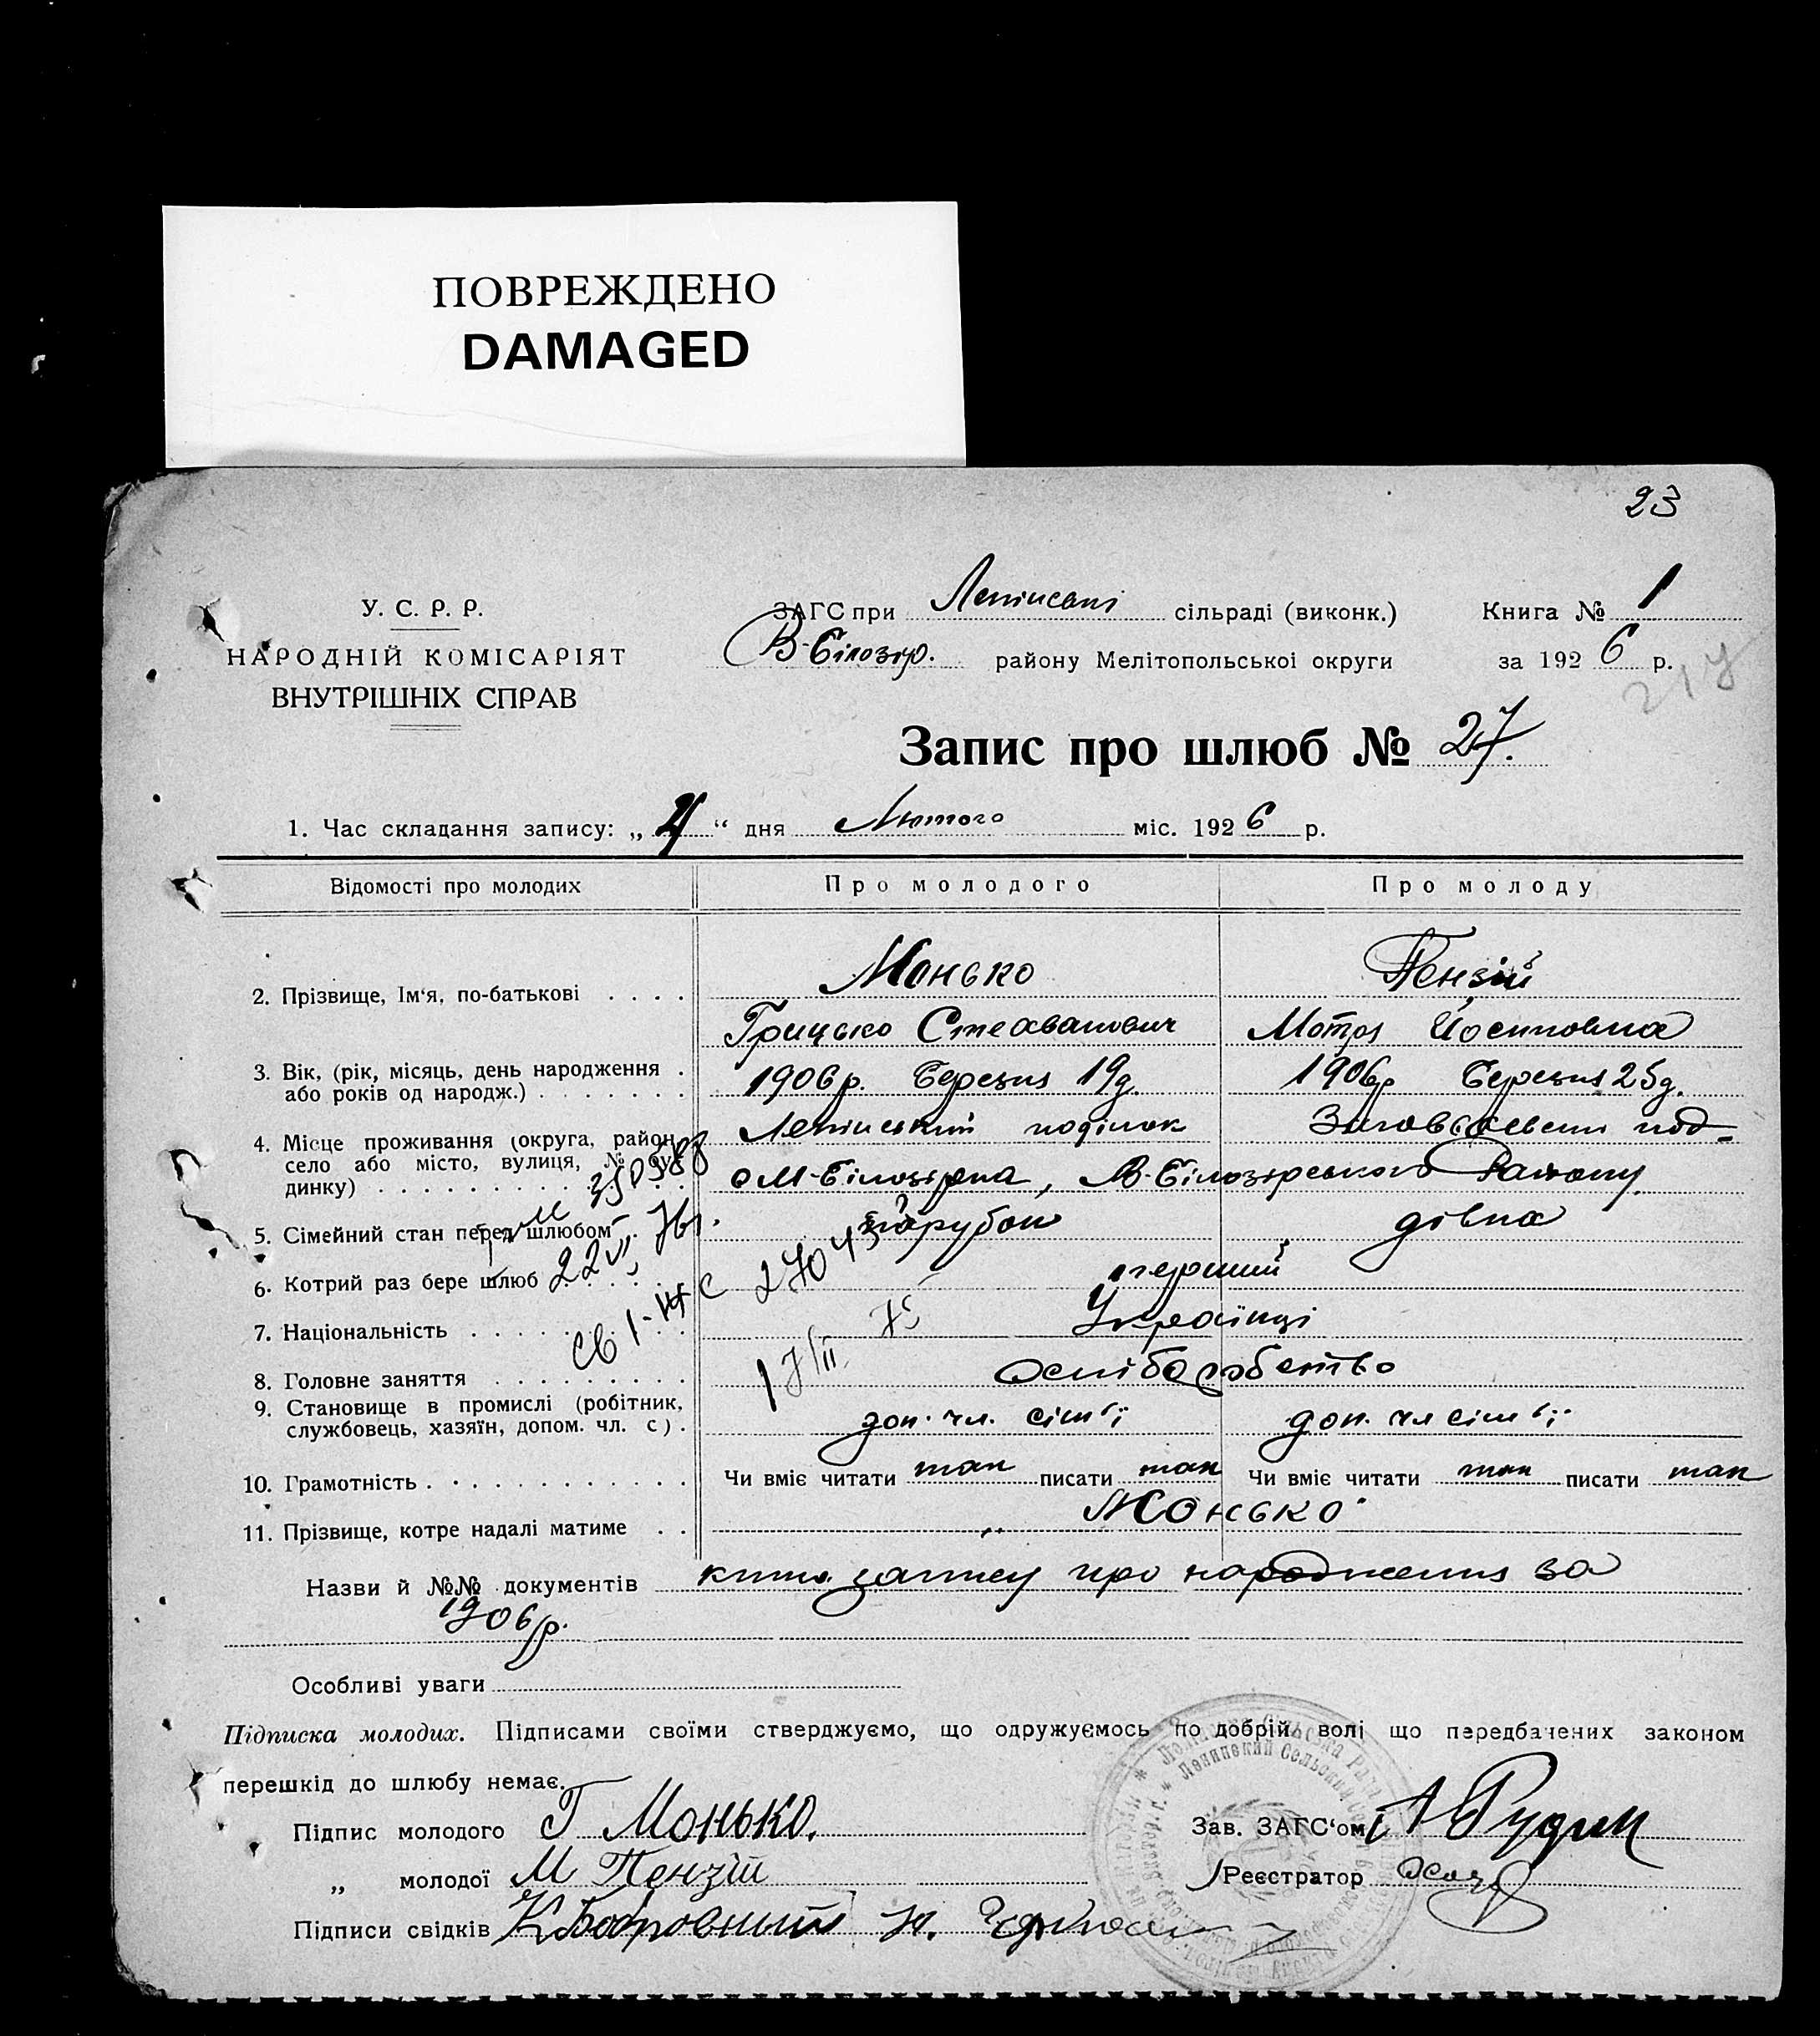 ПОВРЕЖДЕНО
DAMAGED
23
У. С. Р. Р.
НАРОДНІЙ КОМІСАРІЯТ
ВНУТРІШНІХ СПРАВ
ЗАГС при сільраді (виконк.) Книга № 1
В-Білозір. району Мелітопольської округи за 1926 р.
217
Запис про шлюб № 27.
1. Час складання запису: „4“ дня Лютого міс. 1926 р.
Відомості про молодих Про молодого Про молоду
2. Прізвище, Ім‘я, по-батькові . . . . Монько Пензій
Грицько Стехванович Мотря Йосиповна
3. Вік, (рік, місяць, день народження .
або років од народж.) . . . . . . . 1906 р. Березня 19 д. 1906 р Березня 25 д.
4. Місце проживання (округа, район,
село або місто, вулиця, № бу-
динку) . . . . . . . . . . . Ленінський
М-Білозірка, В-Білозірського Району
5. Сімейний стан перед шлюбом . . парубок дівка
6. Котрий раз бере шлюб . . . . перший
22 VI 76 г. 27043
7. Національність . . . . . . . . Українці
8. Головне заняття . . . . . . . . . осібо робство
9. Становище в промислі (робітник,
службовець, хазяїн, допом. чл. с) . доп. чл. сім‘ї доп. чл сім‘ї
10. Грамотність . . . . . . . . . . . Чи вміє читати так писати так Чи вміє читати так писати так
11. Прізвище, котре надалі матиме . . Монько
Назви й №№ документів запису про народження за
1906 р.
Особливі уваги
Підписка молодих. Підписами своїми стверджуємо, що одружуємось по добрій волі що передбачених законом
перешкід до шлюбу немає.
Підпис молодого Г Монько. Зав. ЗАГС‘ом
„ молодої М Пензій Реєстратор
Підписи свідків К Бобровный